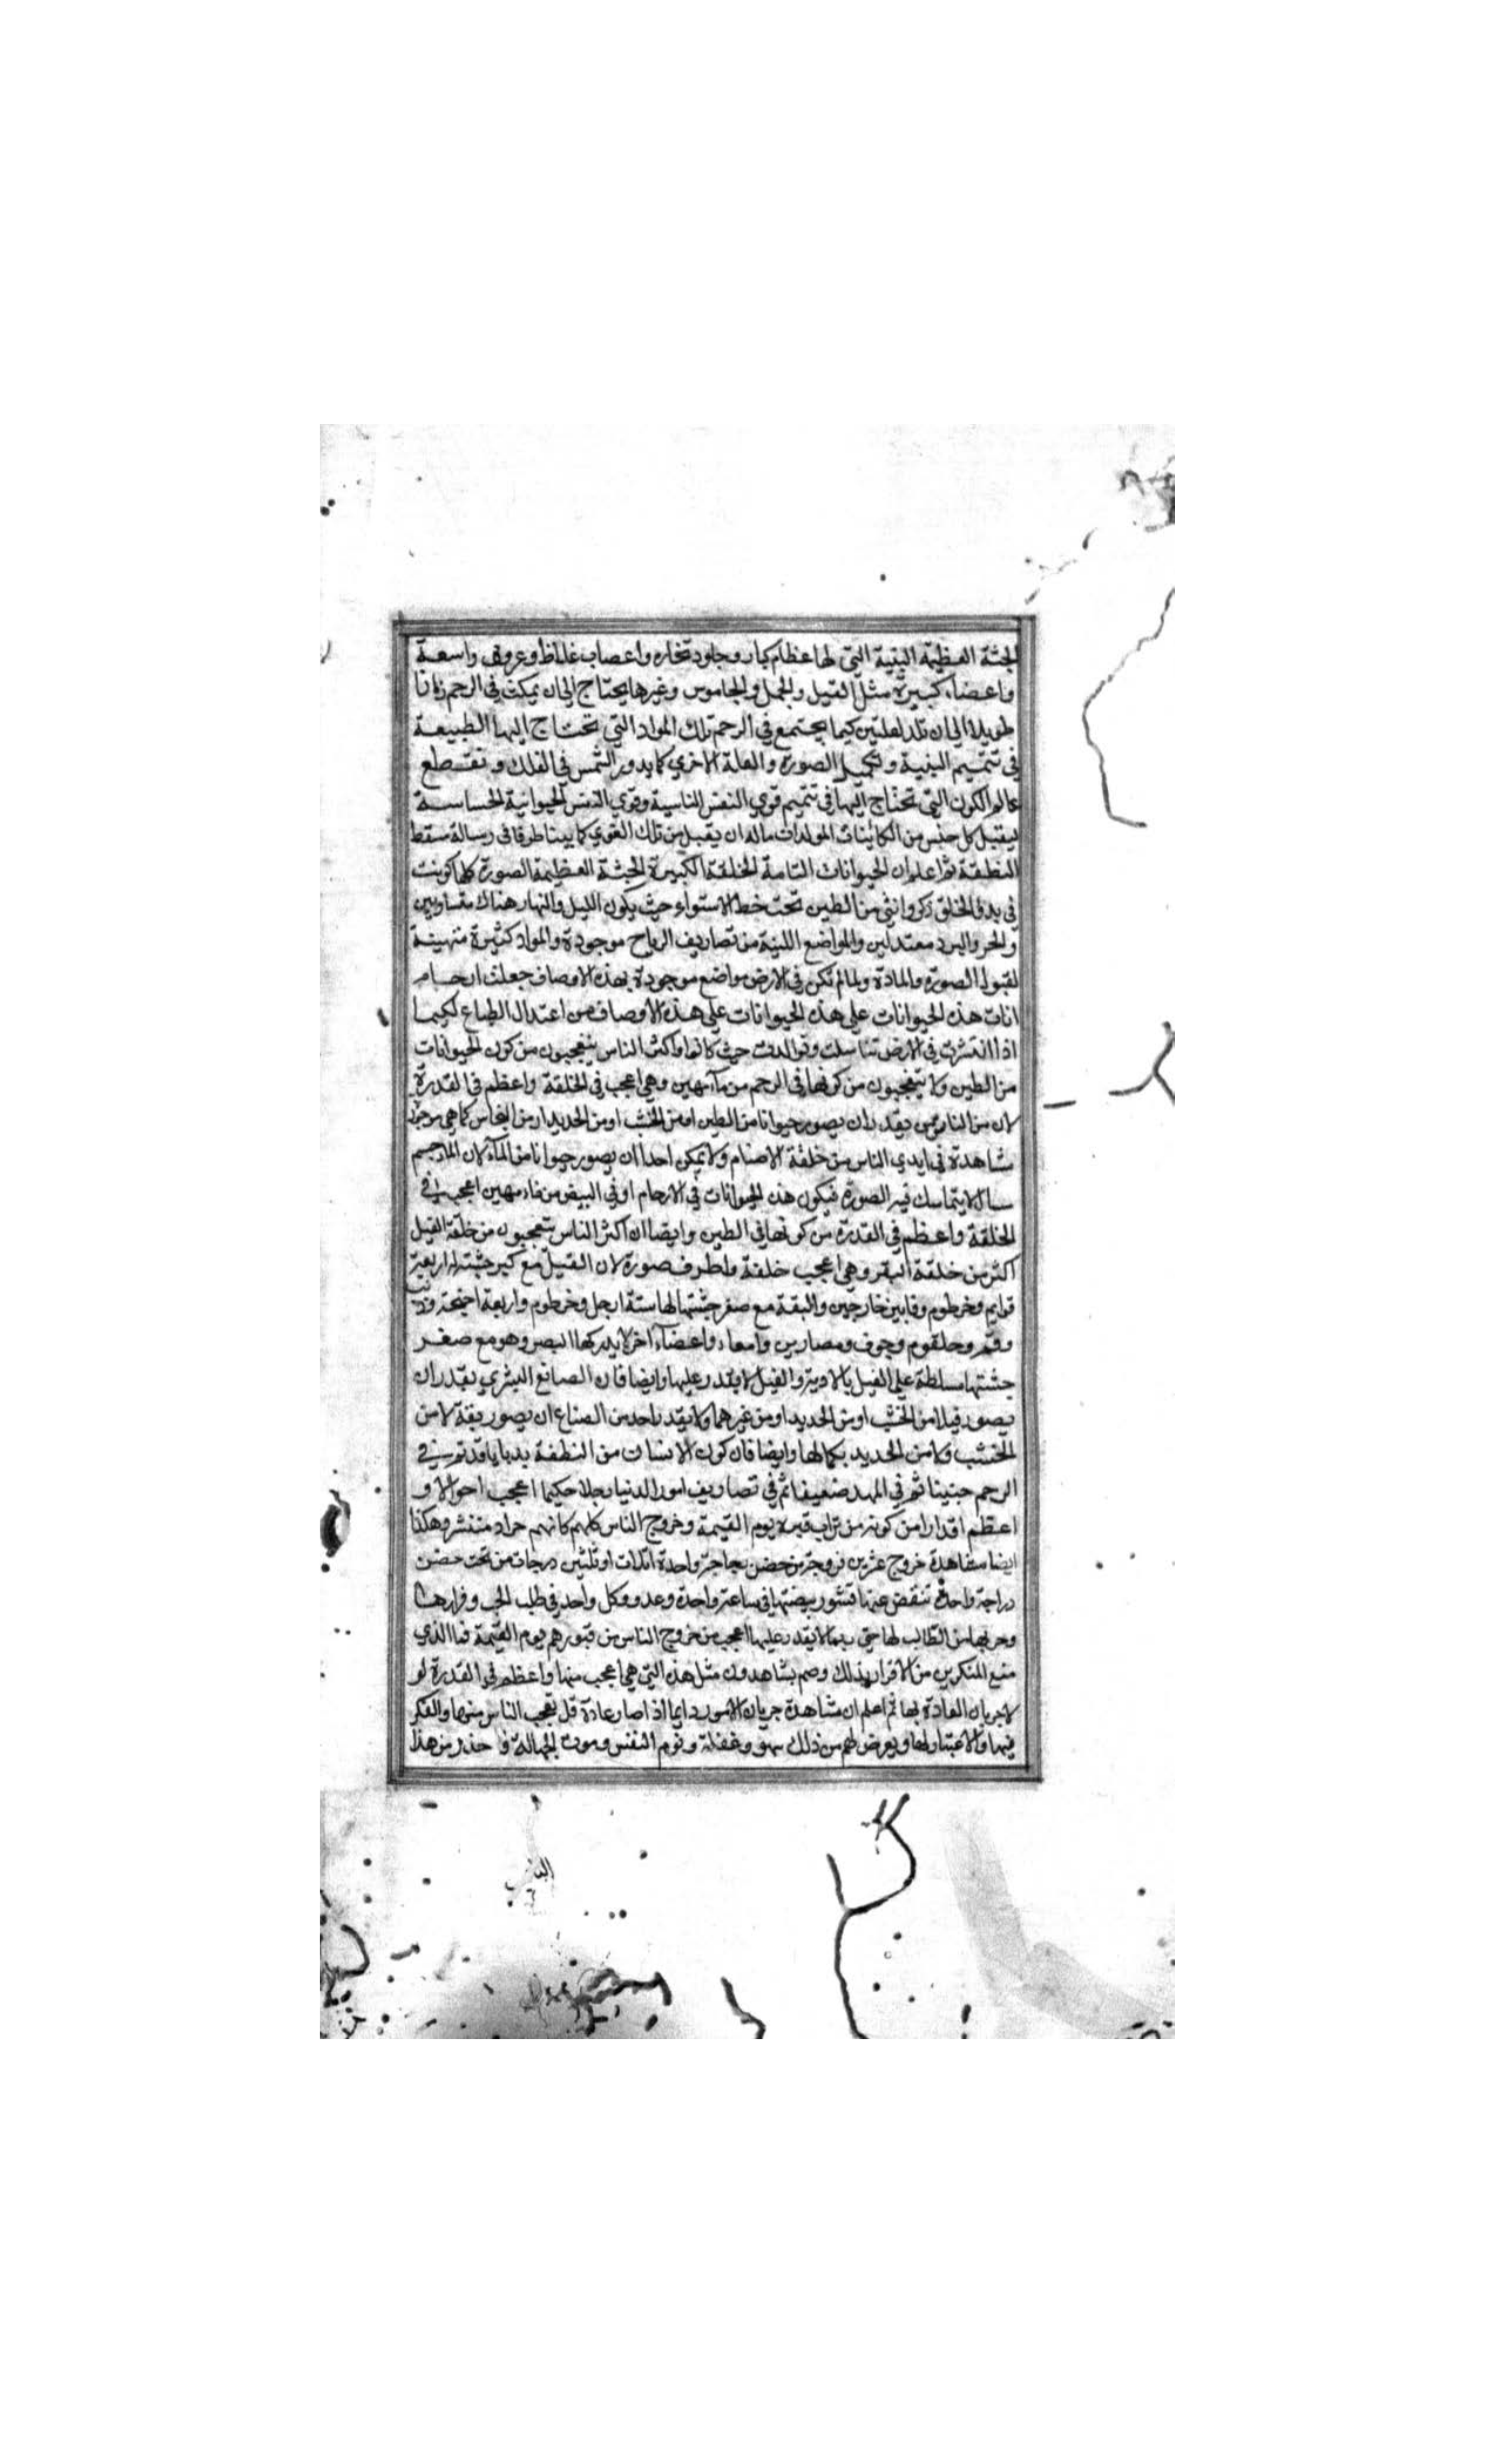 الجثة العظيمة البنية التي لها عظام كبار وجلود نخاره واعصاب غلاظ وعروق واسعة
واعضاء كبيرة مثل الفيل والجمل والجاموس وغيرها يحتاج الي ان يمكث في الرحم زمانا
طويلا الي ان تلد لعلتين كيما يجتمع في الرحم تلك المواد التي تحتاج اليها الطبيعة
في تتميم البنية وتكميل الصورة والعلة الاخري كما يدور الشمس في الفلك و تقطع
عالم الكون التي تحتاج اليها في تتميم قوي النفس النباتية وقوي النفس الحيوانية الحساسة
ليقبل كل جنس من الكائينات المولدات ماله ان يقبل من تلك القوي كما بينا طرفا في رسالة مسقط
النطفة ثم اعلم ان الحيوانات التامة الخلقة الكبيرة الجثة العظيمة الصورة كلها كونت
في بدؤ الخلق ذكر وانثي من الطين تحت خط الاستواء حيث يكون الليل والنهار هناك متساويين
والحر والبرد معتدلين والمواضع اللينة من تصاريف الرياح موجودة والمواد كثيرة متهيئة
لقبول الصورة والمادة ولما لم تكن في الارض مواضع موجودة بهذه الاوصاف جعلت ارحام
اناث هذه الحيوانات علي هذه الحيوانات علي هذه الاوصاف من اعتدال الطباع لكيما
اذا انتشرت في الارض تناسلت وتوالدت حيث كانوا واكثر الناس يتعجبون من كون الحيوانات
من الطين ولا يتعجبون من كونها في الرحم من مآ مهين وهي اعجب في الخلقة واعظم في القدرة
لان من الناس من يقدر ان يصور حيوانا من الطين او من الخشب او من الحديد او من النحاس كما هي موجودة
مشاهدة في ايدي الناس من خلقة الاصنام ولا يمكن احدا ان يصور حيوانا من المآء لان الماء جسم
سيال لا يتماسك فيه الصورة فيكون هذه الحيوانات في الارحام او في البيض من ماء مهين اعجب في
الخلقة واعظم في القدرة من كونها في الطين وايضا ان اكثر الناس يتعجبون من خلقة الفيل
اكثر من خلقة البقر وهي اعجب خلقة واطرف صورة لان الفيل مع كبر جثته له اربعة
قوايم وخرطوم ونابين خارجين والبقة مع صغر جثتها لها ستة ارجل وخرطوم واربعة اجنحة وذنب
وفم وحلقوم وجوف ومصارين وامعاء واعضاء اخر لا يدركها البصر وهو مع صغر
جثتها مسلطة علي الفيل بالاذية والفيل لا يقدر عليها وايضا فان الصانع البشري يقدر ان
يصور فيلا من الخشب او من الحديد او من غيرهما ولا يقدر احد من الصناع ان يصور بقة لا من
الخشب ولا من الحديد بكمالها وايضا فان كون الانسان من النطفة بديا ثم في
الرحم جنينا ثم في المهد ضعيفا ثم في تصاريف امور الدنيا رجلا حكيما اعجب احوالا و
اعظم اقدارا من كونه من تراب قبره يوم القيمة وخروج الناس كلهم كانهم جراد منتشر وهكذا
ايضا مشاهدة خروج عشرين فروجة من حضن دجاجة واحدة او ثلثين درجات من تحت حضن
دراجة واحدة تنقض عنها قشور بيضتها في ساعة واحدة وعدو كل واحد في طلب الحب وفرارها
وهربها من الطالب لها حتي ربما لا يقدر عليها اعجب من خروج الناس من قبورهم يوم القيمة فما الذي
منع المنكرين من الاقرار بذلك وهم يشاهدون مثل هذه التي هي اعجب منها واعظم في القدرة لو
لا جريان العادة بها ثم اعلم ان مشاهدة جريان الامور دايما اذا صار عادة قل تعجب الناس منها والفكر
فيها والاعتبار لها ويعرض لهم من ذلك سهو وغفلة ونوم النفس وموت الجهالة و حذر من هذا